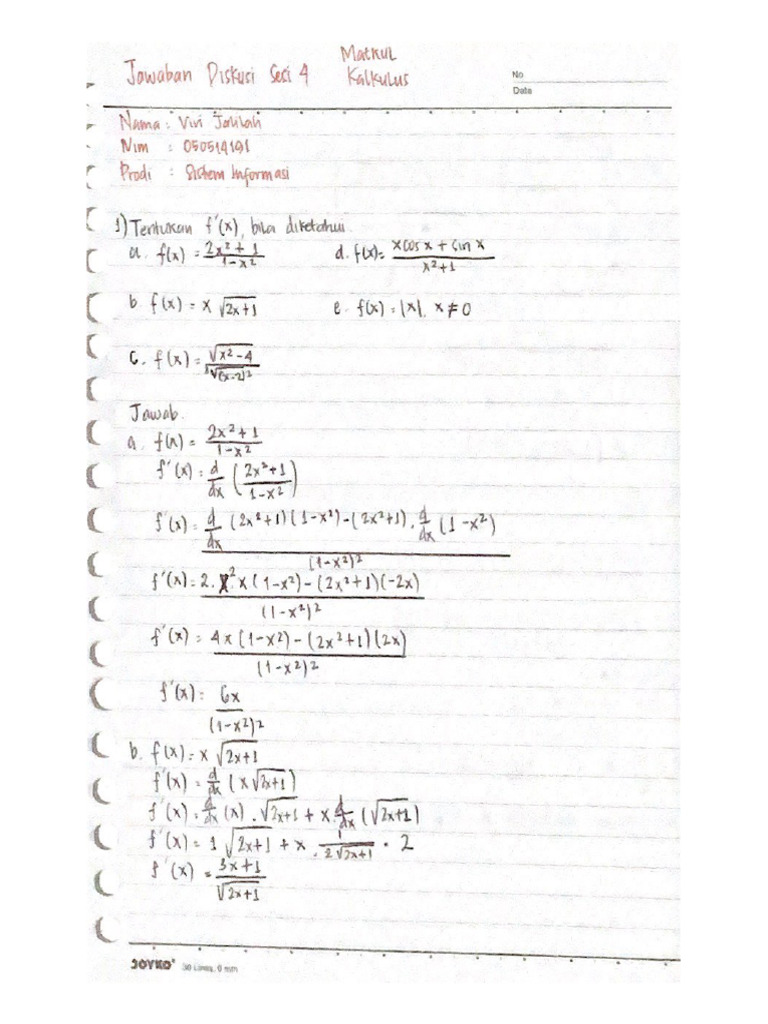 Matkul
Jawaban Diskusi Sesi 4 Kalkulus
No
Date
Nama : Vivi Jalilah
Nim : 050514191
Prodi : Sistem Informasi
1) Tentukan f'(x), bila diketahui.
a. f(x) = (2x² + 1)/(1-x²) d. f(x) = (x cos x + sin x)/(x²+1)
b f(x) = x √(2x+1) e. f(x) = |x|, x ≠ 0
c. f(x) = √(x²-4)/∛((x-2)²)
Jawab.
a. f(x) = (2x²+1)/(1-x²)
f'(x) = d/dx ((2x²+1)/(1-x²))
f'(x) = (d/dx (2x²+1)(1-x²)-(2x²+1). d/dx (1-x²))/(1-x²)²
f'(x) = (2. 2 x(1-x²)-(2x²+1)(-2x))/(1-x²)²
f'(x) = (4x(1-x²)-(2x²+1)(2x))/(1-x²)²
f'(x) = 6x/(1-x²)²
b. f(x) = x √(2x+1)
f'(x) = d/dx (x√(2x+1))
f'(x) = d/dx (x) . √(2x+1) + x d/dx (√(2x+1))
f'(x) = 1 √(2x+1) + x . 1/(2√(2x+1)) • 2
f'(x) = (3x+1)/√(2x+1)
JOYKO 30 Lines, 8 mm